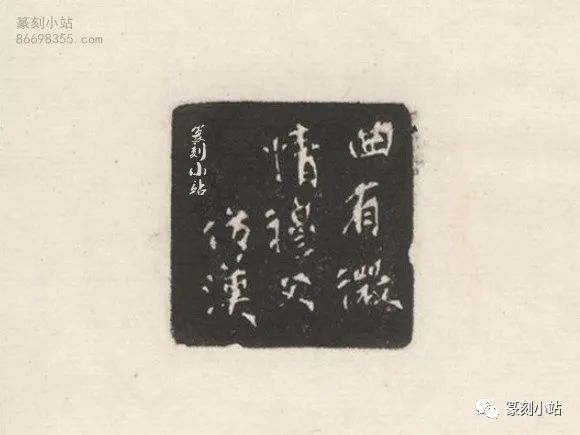 篆刻小站
86698355 .com
曲有微
情穆父
仿漢
篆刻小站
篆刻小站